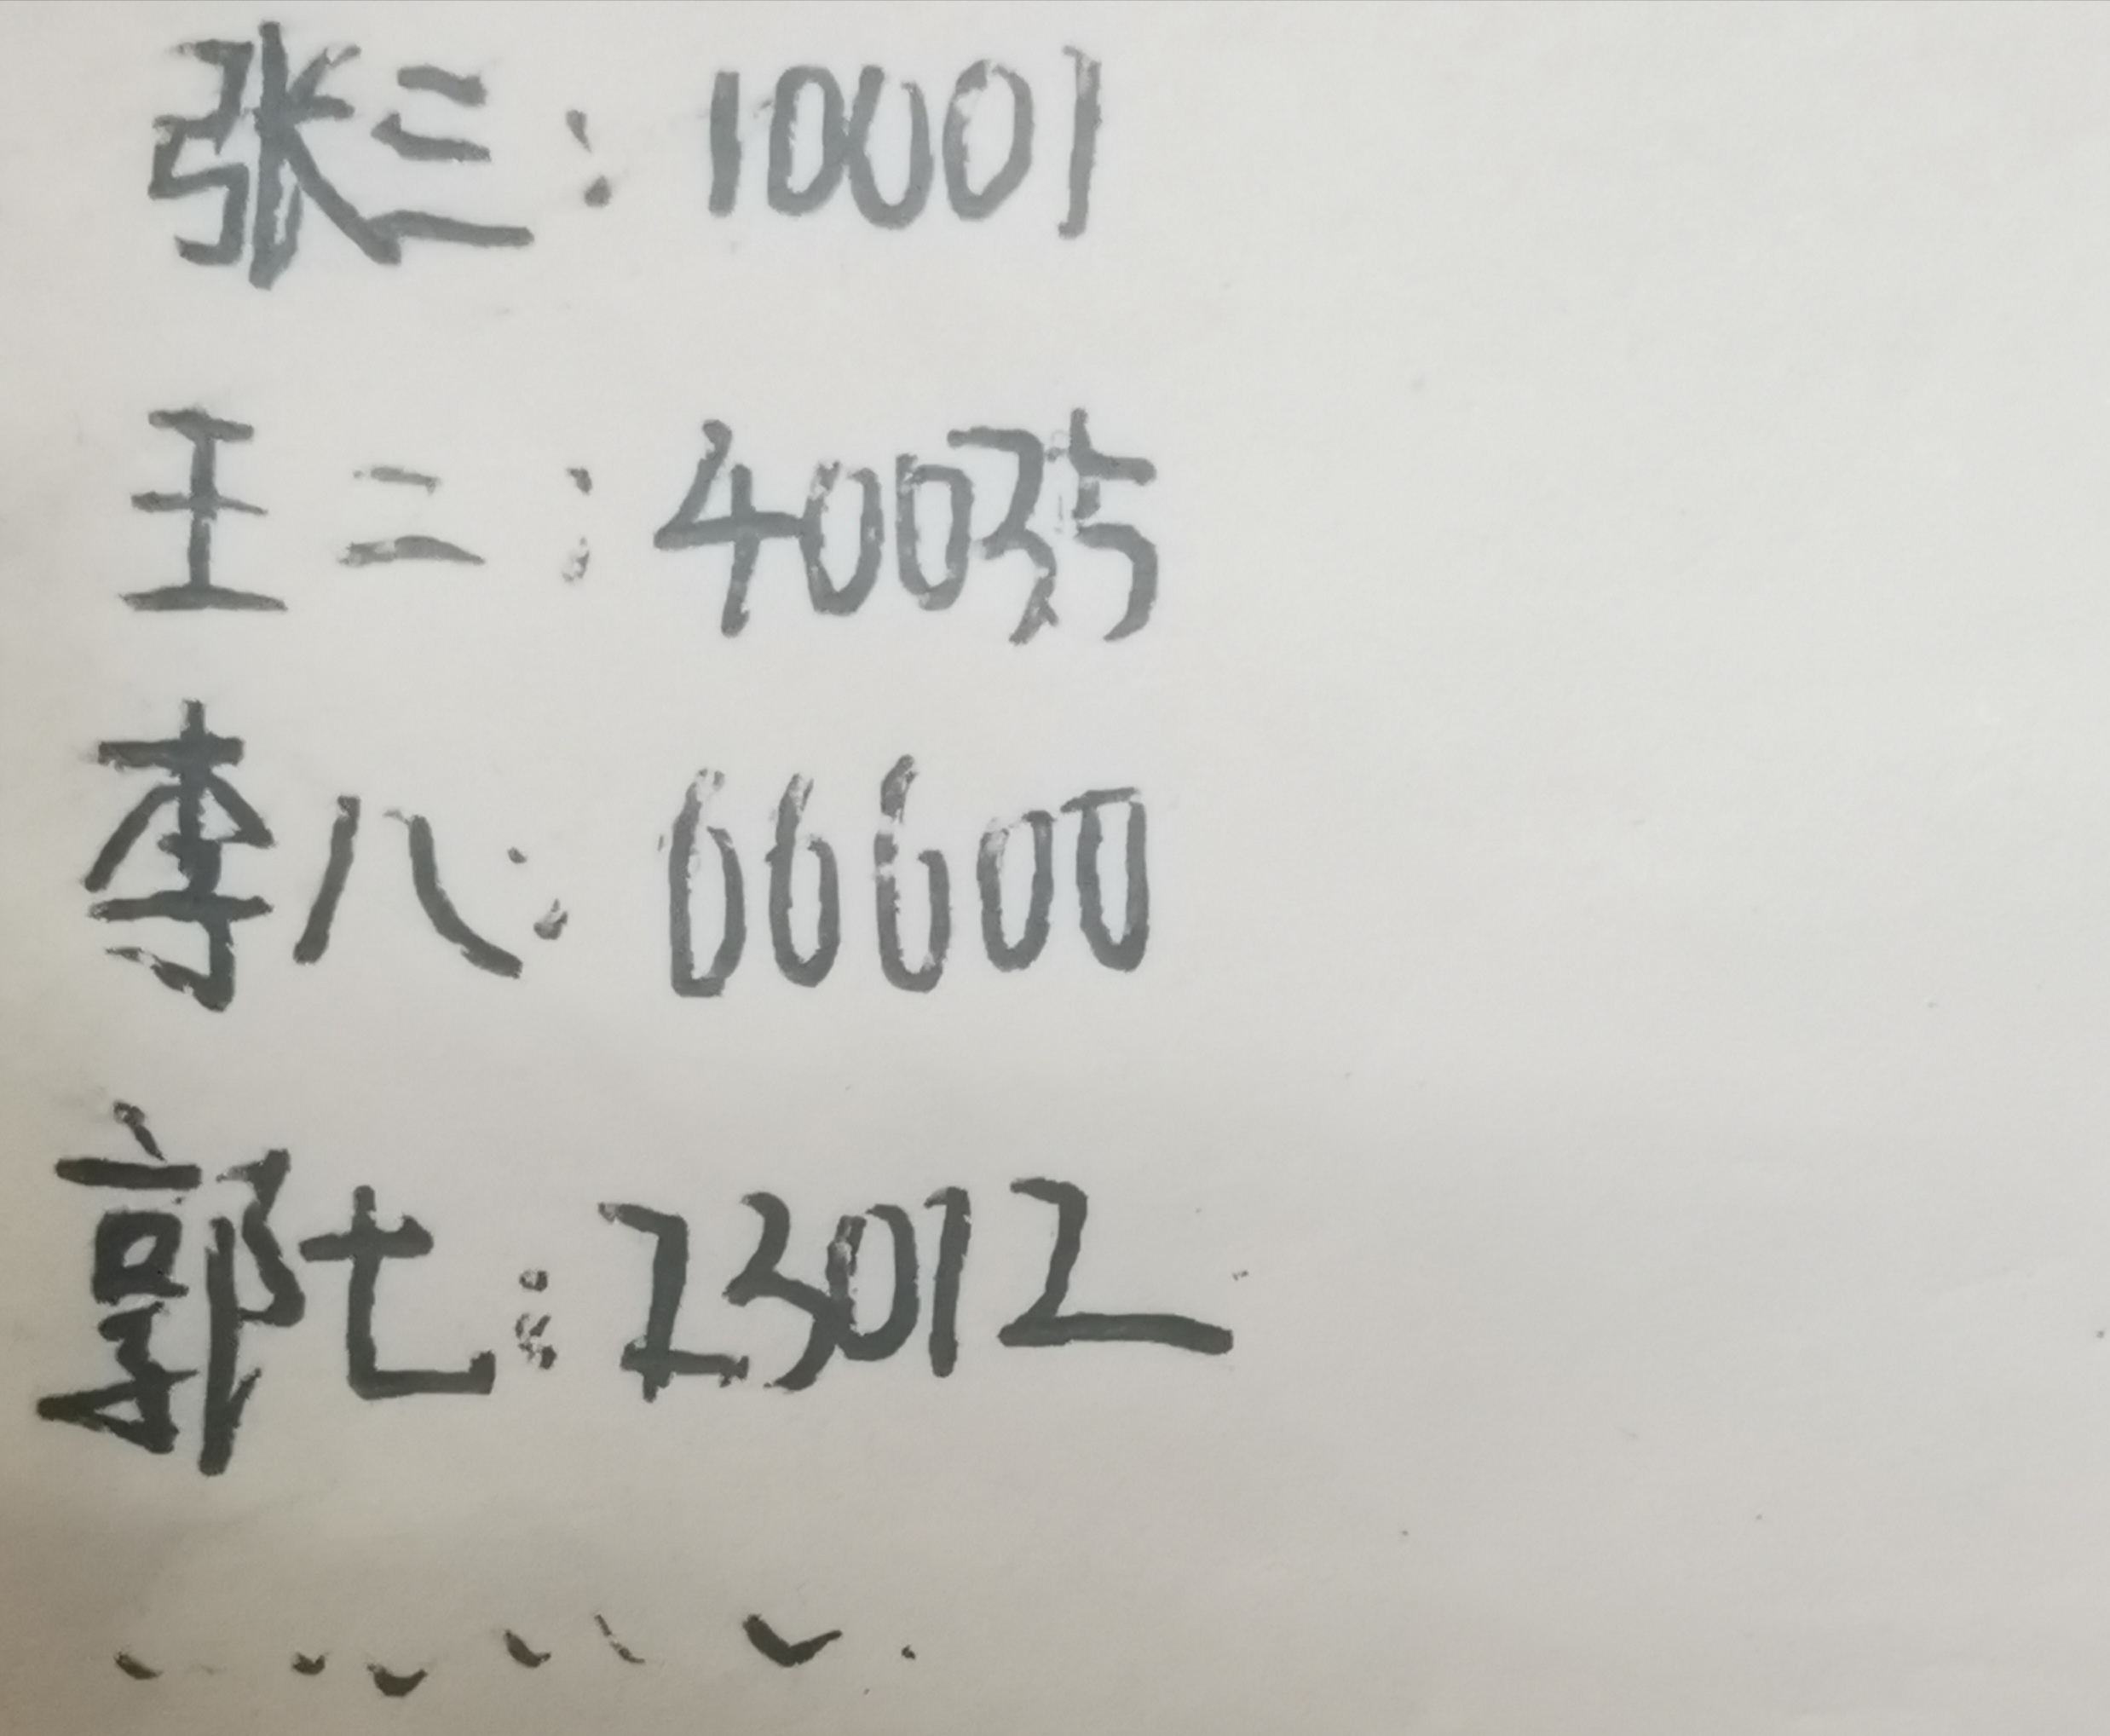 张三：10001
王二：40035
李八：66600
郭七：23012
……